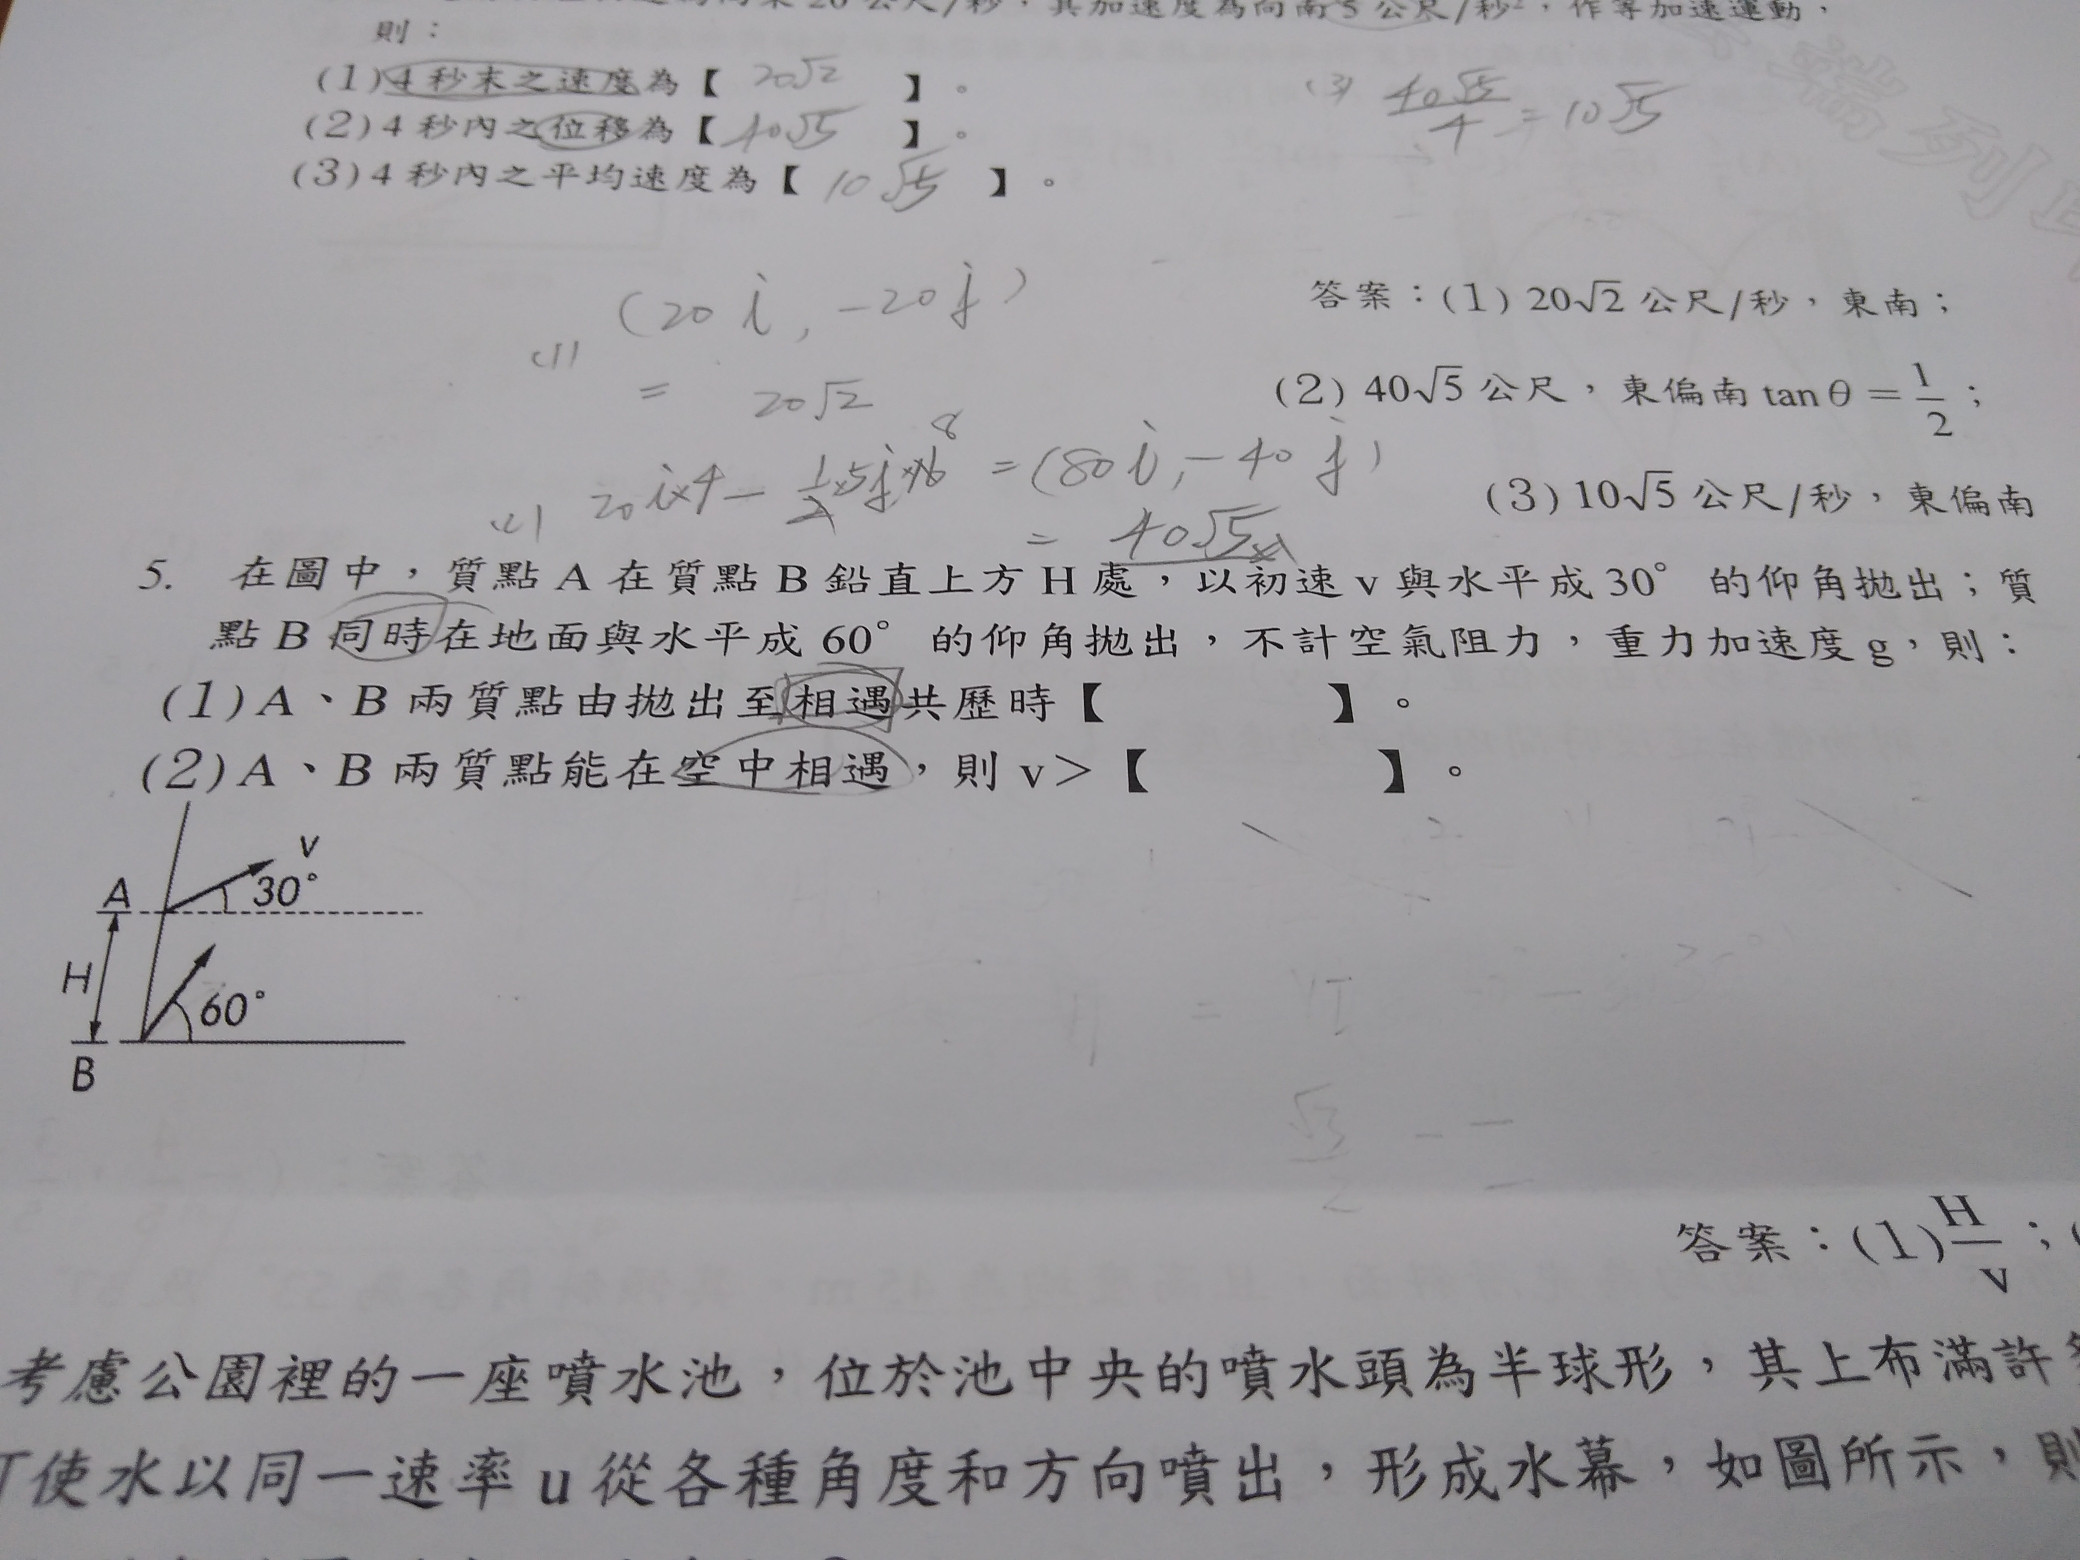 20公尺/秒,其加速度為向南5公尺/秒²,作等加速運動,
則:
(1)4秒末之速度為【 20√2 】。
(2)4秒內之位移為【 40√5 】。
(3)4秒內之平均速度為【 10√5 】。
(3) 40√5/4 = 10√5
(1) (20i, -20j)
= 20√2
(2) 20i×4 - 1/2×5j×16 8 = (80i, -40j)
= 40√5
答案:(1) 20√2 公尺/秒,東南;
(2) 40√5 公尺,東偏南 tanθ = 1/2;
(3) 10√5 公尺/秒,東偏南
5. 在圖中,質點A在質點B鉛直上方H處,以初速v與水平成30°的仰角拋出;質
點B同時在地面與水平成60°的仰角拋出,不計空氣阻力,重力加速度g,則:
(1)A、B兩質點由拋出至相遇共歷時【 】。
(2)A、B兩質點能在空中相遇,則v>【 】。
v
A 30°
H
60°
B
答案:(1) H/v;(
考慮公園裡的一座噴水池,位於池中央的噴水頭為半球形,其上布滿許
使水以同一速率u從各種角度和方向噴出,形成水幕,如圖所示,則